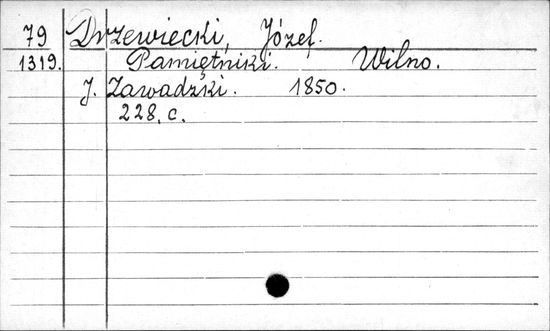 79 Drzewiecki, Józef.
1319. Pamiętniki. Wilno.
J. Zawadzki. 1850.
228, c.